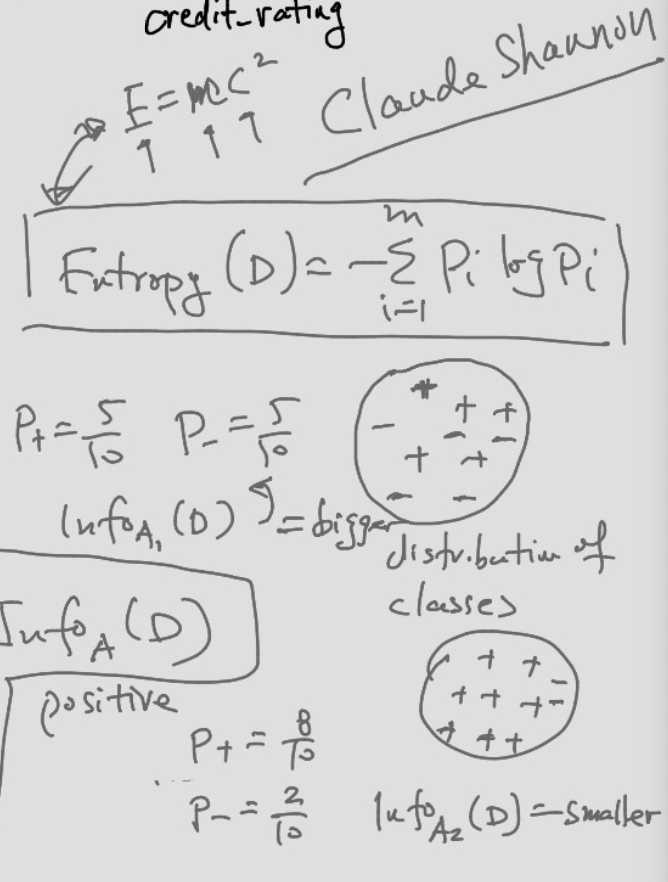 credit_rating
E = mc²
Claude Shannon
Entropy (D) = -∑ᵢ₌₁ᵐ Pᵢ log Pᵢ
P₊ = 5/10 P₋ = 5/10
Info_A₁ (D) = bigger
distribution of
classes
Info_A (D)
positive
P₊ = 8/10
P₋ = 2/10
Info_A₂ (D) = smaller